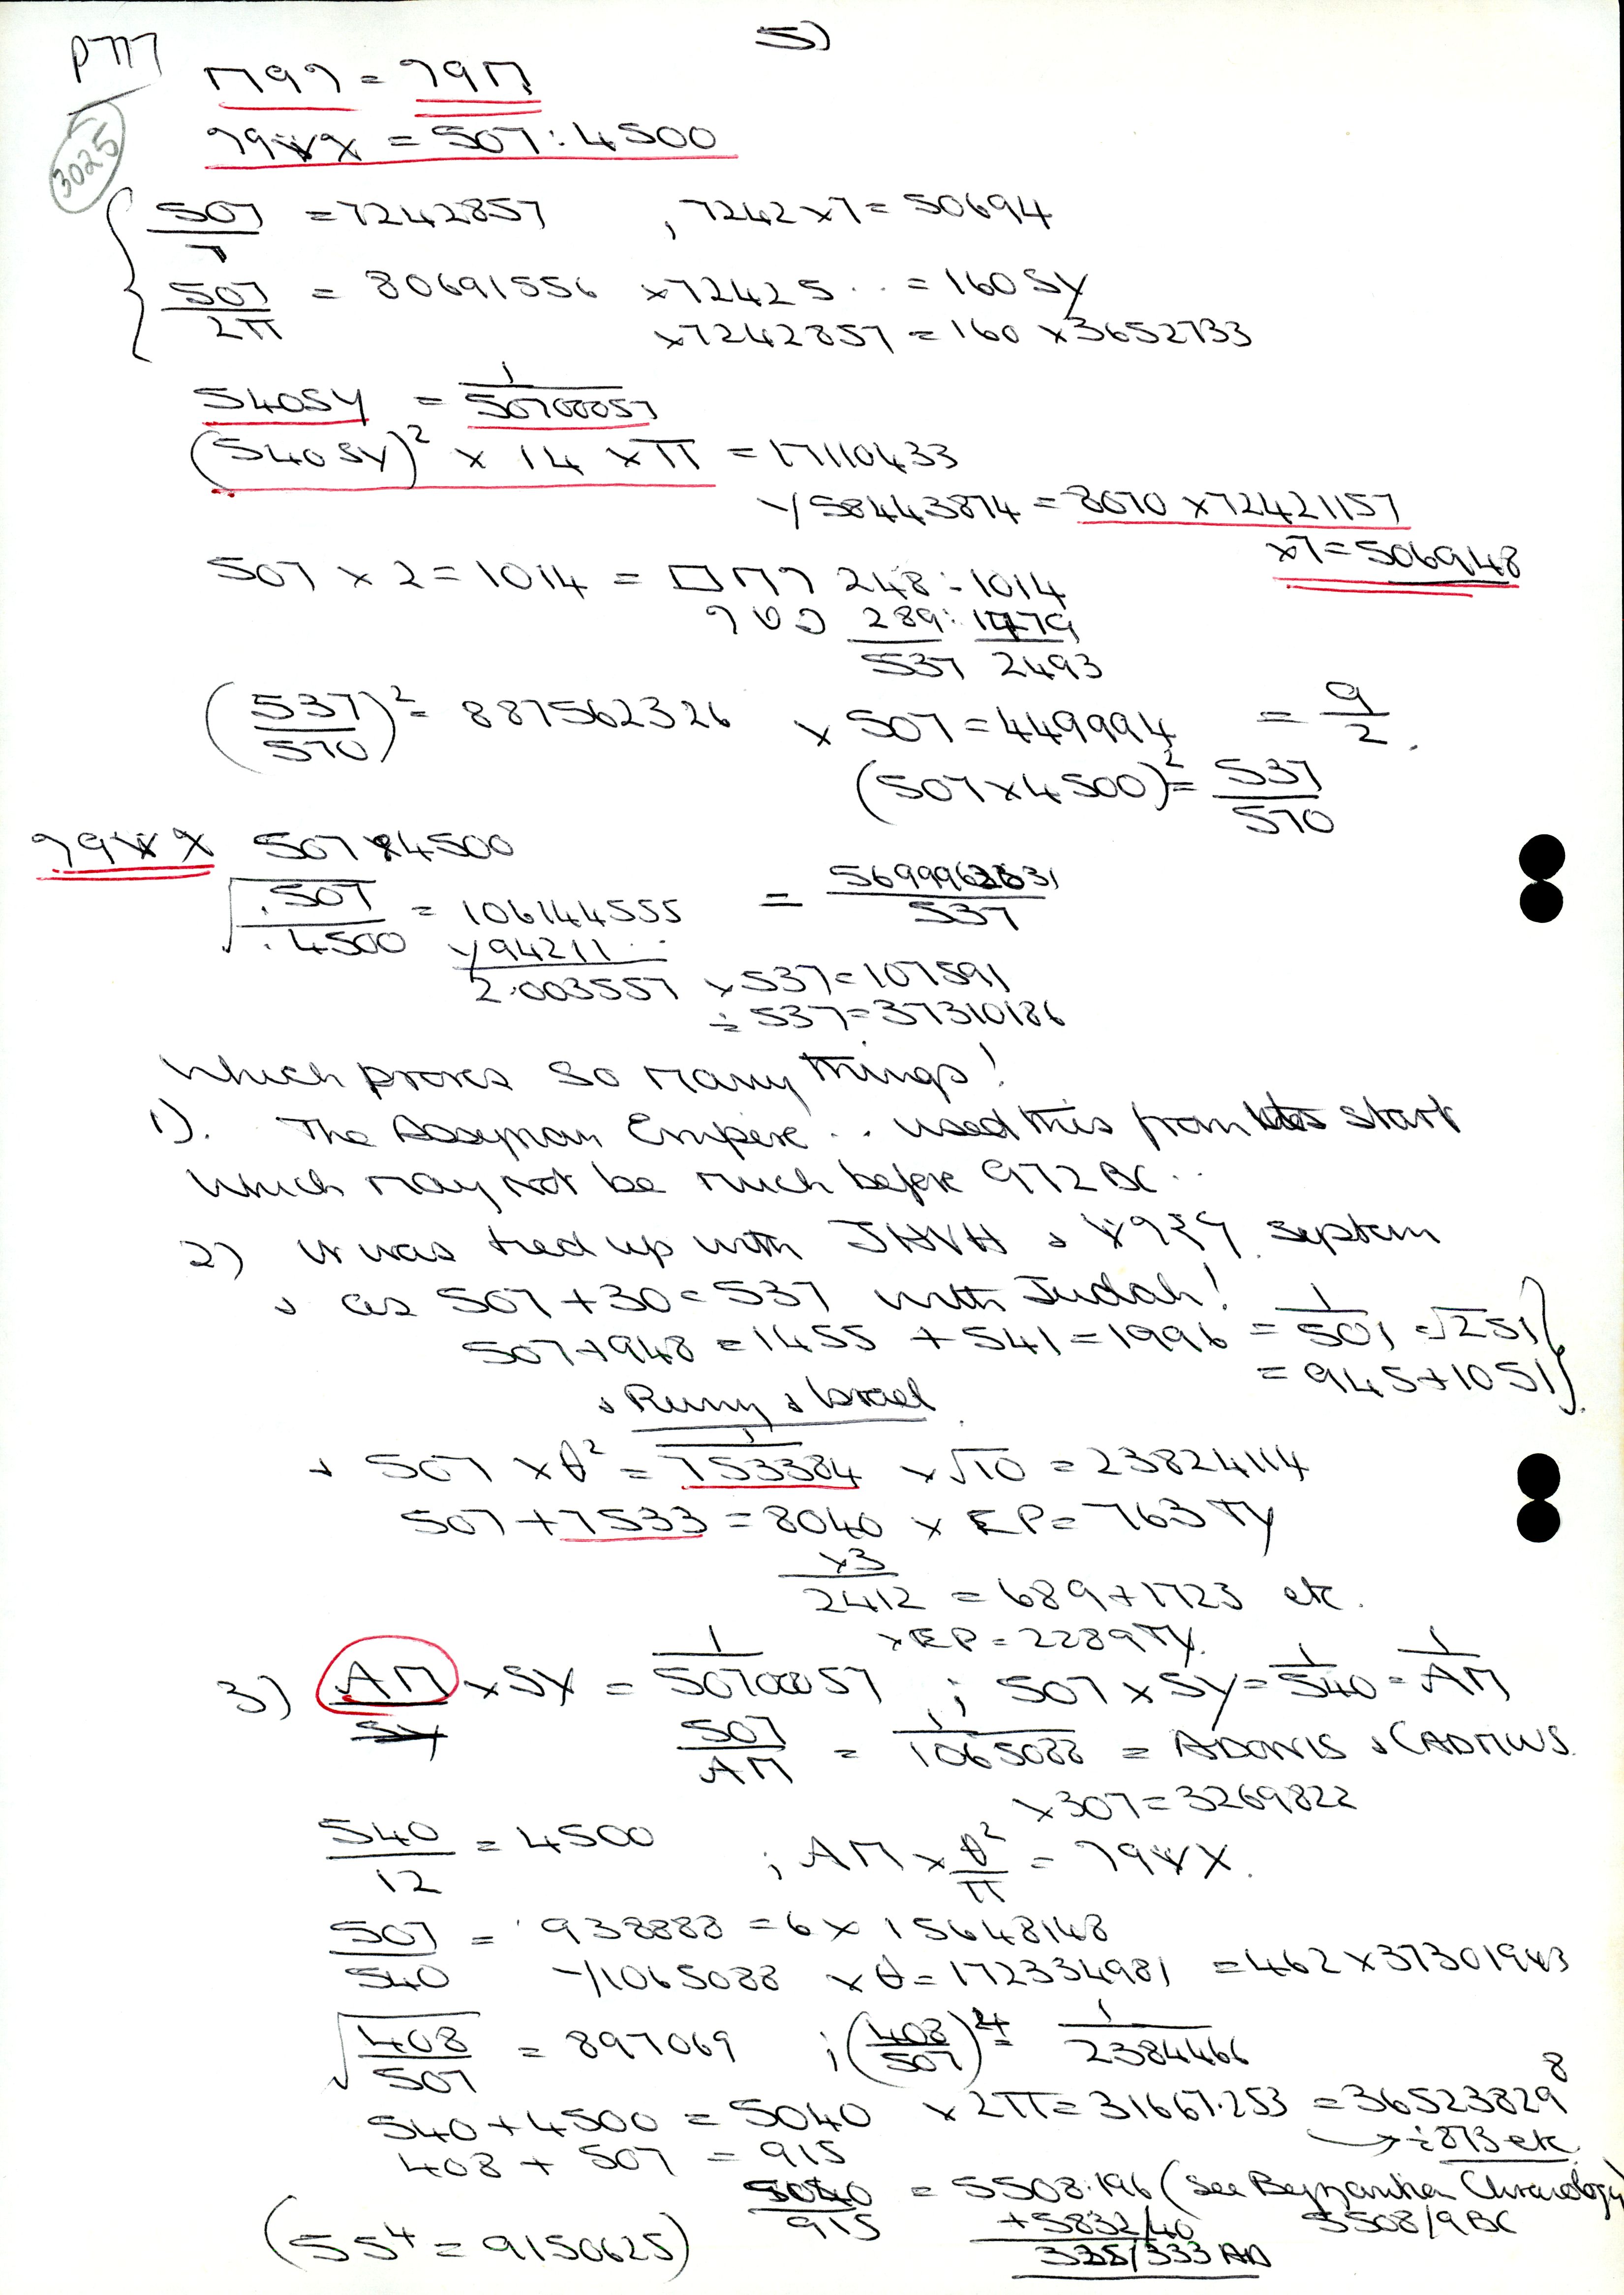 5)
P777
3025
507 : 4500
507/7 = 7242857 , 7242 x 7 = 50694
507/2π = 80691556 x 72425 .. = 160 SY
x 7242857 = 160 x 3652733
540SY = 1/50700057
(540SY)² x 14 x π = 17110433
√58443874 = 8070 x 72421157
x7 = 506948
507 x 2 = 1014 = 248 : 1014
289 : 1479
537 2493
(537/570)² = 887562326 x 507 = 449994 = 9/2.
(507 x 4500)² = 537/570
507 x 4500
√(.507/.4500) = 106144555 = 5699962631/537
√94211 ..
2.003557 x 537 = 107591
÷ 537 = 37310186
Which proves so many things!
1). The Assyrian Empire .. used this from its start
which may not be much before 972 BC..
2) it was tied up with JHVH & system
& as 507 + 30 = 537 with Judah!
507 + 948 = 1455 + 541 = 1996 = 1/501 = √251
= 945 + 1051
& Israel
& 507 x θ² = 1/753384 x √10 = 23824114
507 + 7533 = 8040 x EP = 763 TY
x3
2412 = 689 + 1723 etc.
x EP = 2289 TY.
3) AM x SY = 1/50700057 ; 507 x SY = 1/540 = 1/AM
507/AM = 1/1065088 = ADONIS & CADMUS.
x 307 = 3269822
540/12 = 4500 ; AM x θ²/π =
507/540 = 938888 = 6 x 15648148
√1065088 x θ = 172334981 = 462 x 37301943
√(408/507) = 897069 ; (408/507)⁴ = 1/2384466
540 + 4500 = 5040 x 2π = 31667.253 = 36523829⁸
→ ÷ 873 etc.
408 + 507 = 915
5040/915 = 5508.196 (see Byzantian Chronology
+ 5832/40 5508/9 BC
(55⁴ = 9150625) 332/333 AD